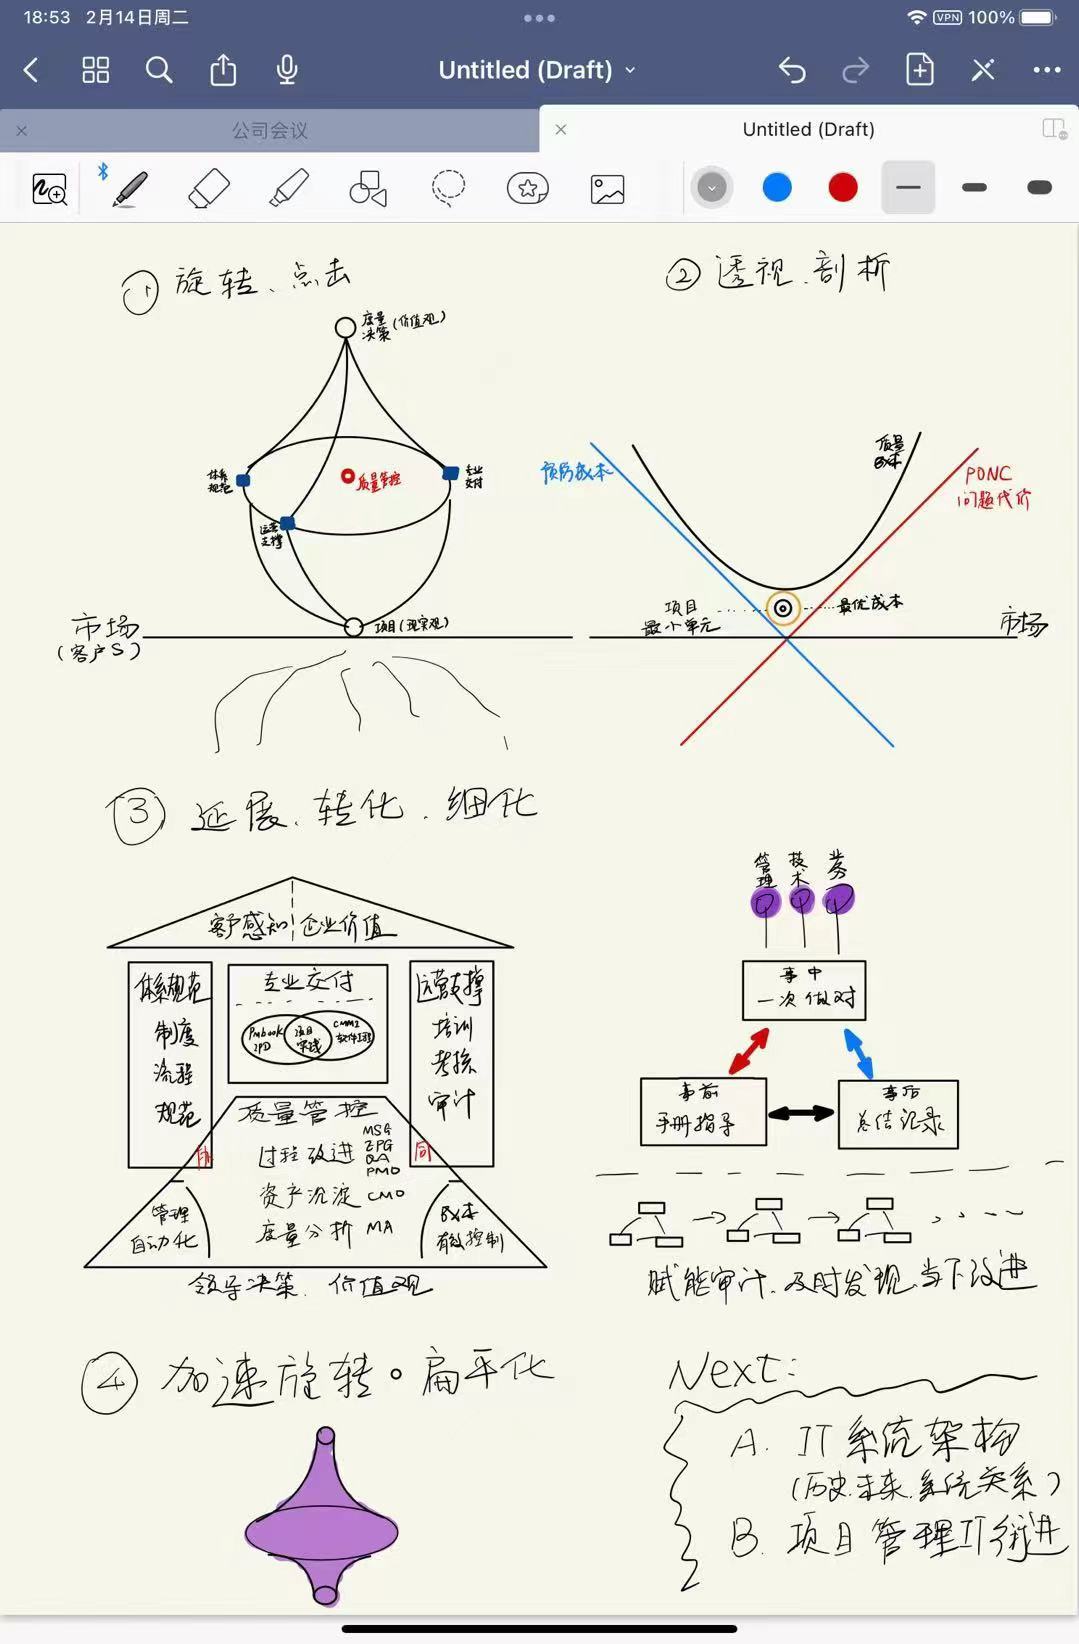 18:53 2月14日周二
VPN 100%
Untitled (Draft)
公司会议
Untitled (Draft)
① 旋转、点击
度量
决策 (价值观)
体系
规范
质量管控
专业
交付
运营
支撑
项目 (现实观)
市场
(客户S)
② 透视、剖析
预防成本
质量
成本
PONC
问题代价
项目
最小单元
最优成本
市场
③ 延展、转化、细化
客户感知 企业价值
体系规范
制度
流程
规范
专业交付
Pmbook
IPD
项目
实践
CMMI
软件工程
运营支撑
培训
考核
审计
质量管控
过程改进
MSG
EPG
QA
PMO
资产沉淀 CMO
度量分析 MA
同
管理
自动化
成本
有效控制
领导决策、价值观
管理
技术
业务
事中
一次做对
事前
手册指导
事后
总结记录
赋能审计、及时发现、当下改进
④ 加速旋转。扁平化
Next:
A. IT系统架构
(历史、未来、系统关系)
B. 项目管理IT演进